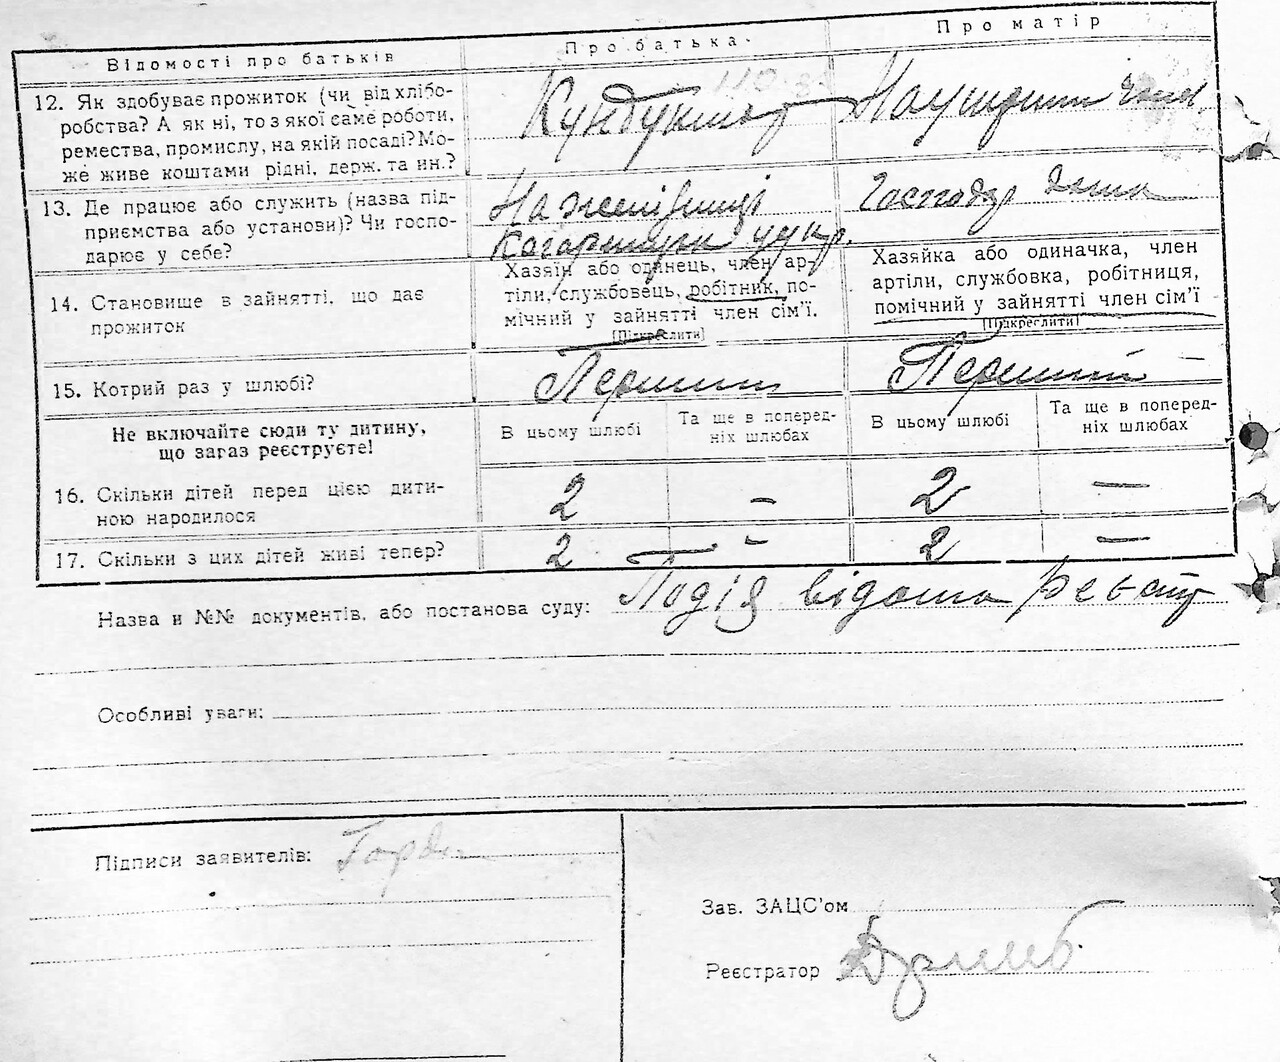 Відомості про батьків
Про батька
Про матір
12. Як здобуває прожиток (чи від хлібо-
робства? А як ні, то з якої саме роботи,
ремества, промислу, на якій посаді? Мо-
же живе коштами рідні, держ. та ин.?
Кундуктор
13. Де працює або служить (назва під-
приємства або установи)? Чи госпо-
дарює у себе?
На
Господар дома
14. Становище в зайнятті, що дає
прожиток
Хазяїн або одинець, член ар-
тілі, службовець, робітник, по-
мічний у зайнятті член сім'ї.
[Підкреслити]
Хазяйка або одиначка, член
артіли, службовка, робітниця,
помічний у зайнятті член сім'ї
[Підкреслити]
15. Котрий раз у шлюбі?
Перший
Перший –
Не включайте сюди ту дитину,
що зараз реєструєте!
В цьому шлюбі
Та ще в поперед-
ніх шлюбах
В цьому шлюбі
Та ще в поперед-
ніх шлюбах
16. Скільки дітей перед цією дити-
ною народилося
2 – 2 –
17. Скільки з цих дітей живі тепер?
2 – 2 –
Назва и №№ документів, або постанова суду: Подія відома
Особливі уваги:
Підписи заявителів:
Зав. ЗАЦС'ом
Реєстратор